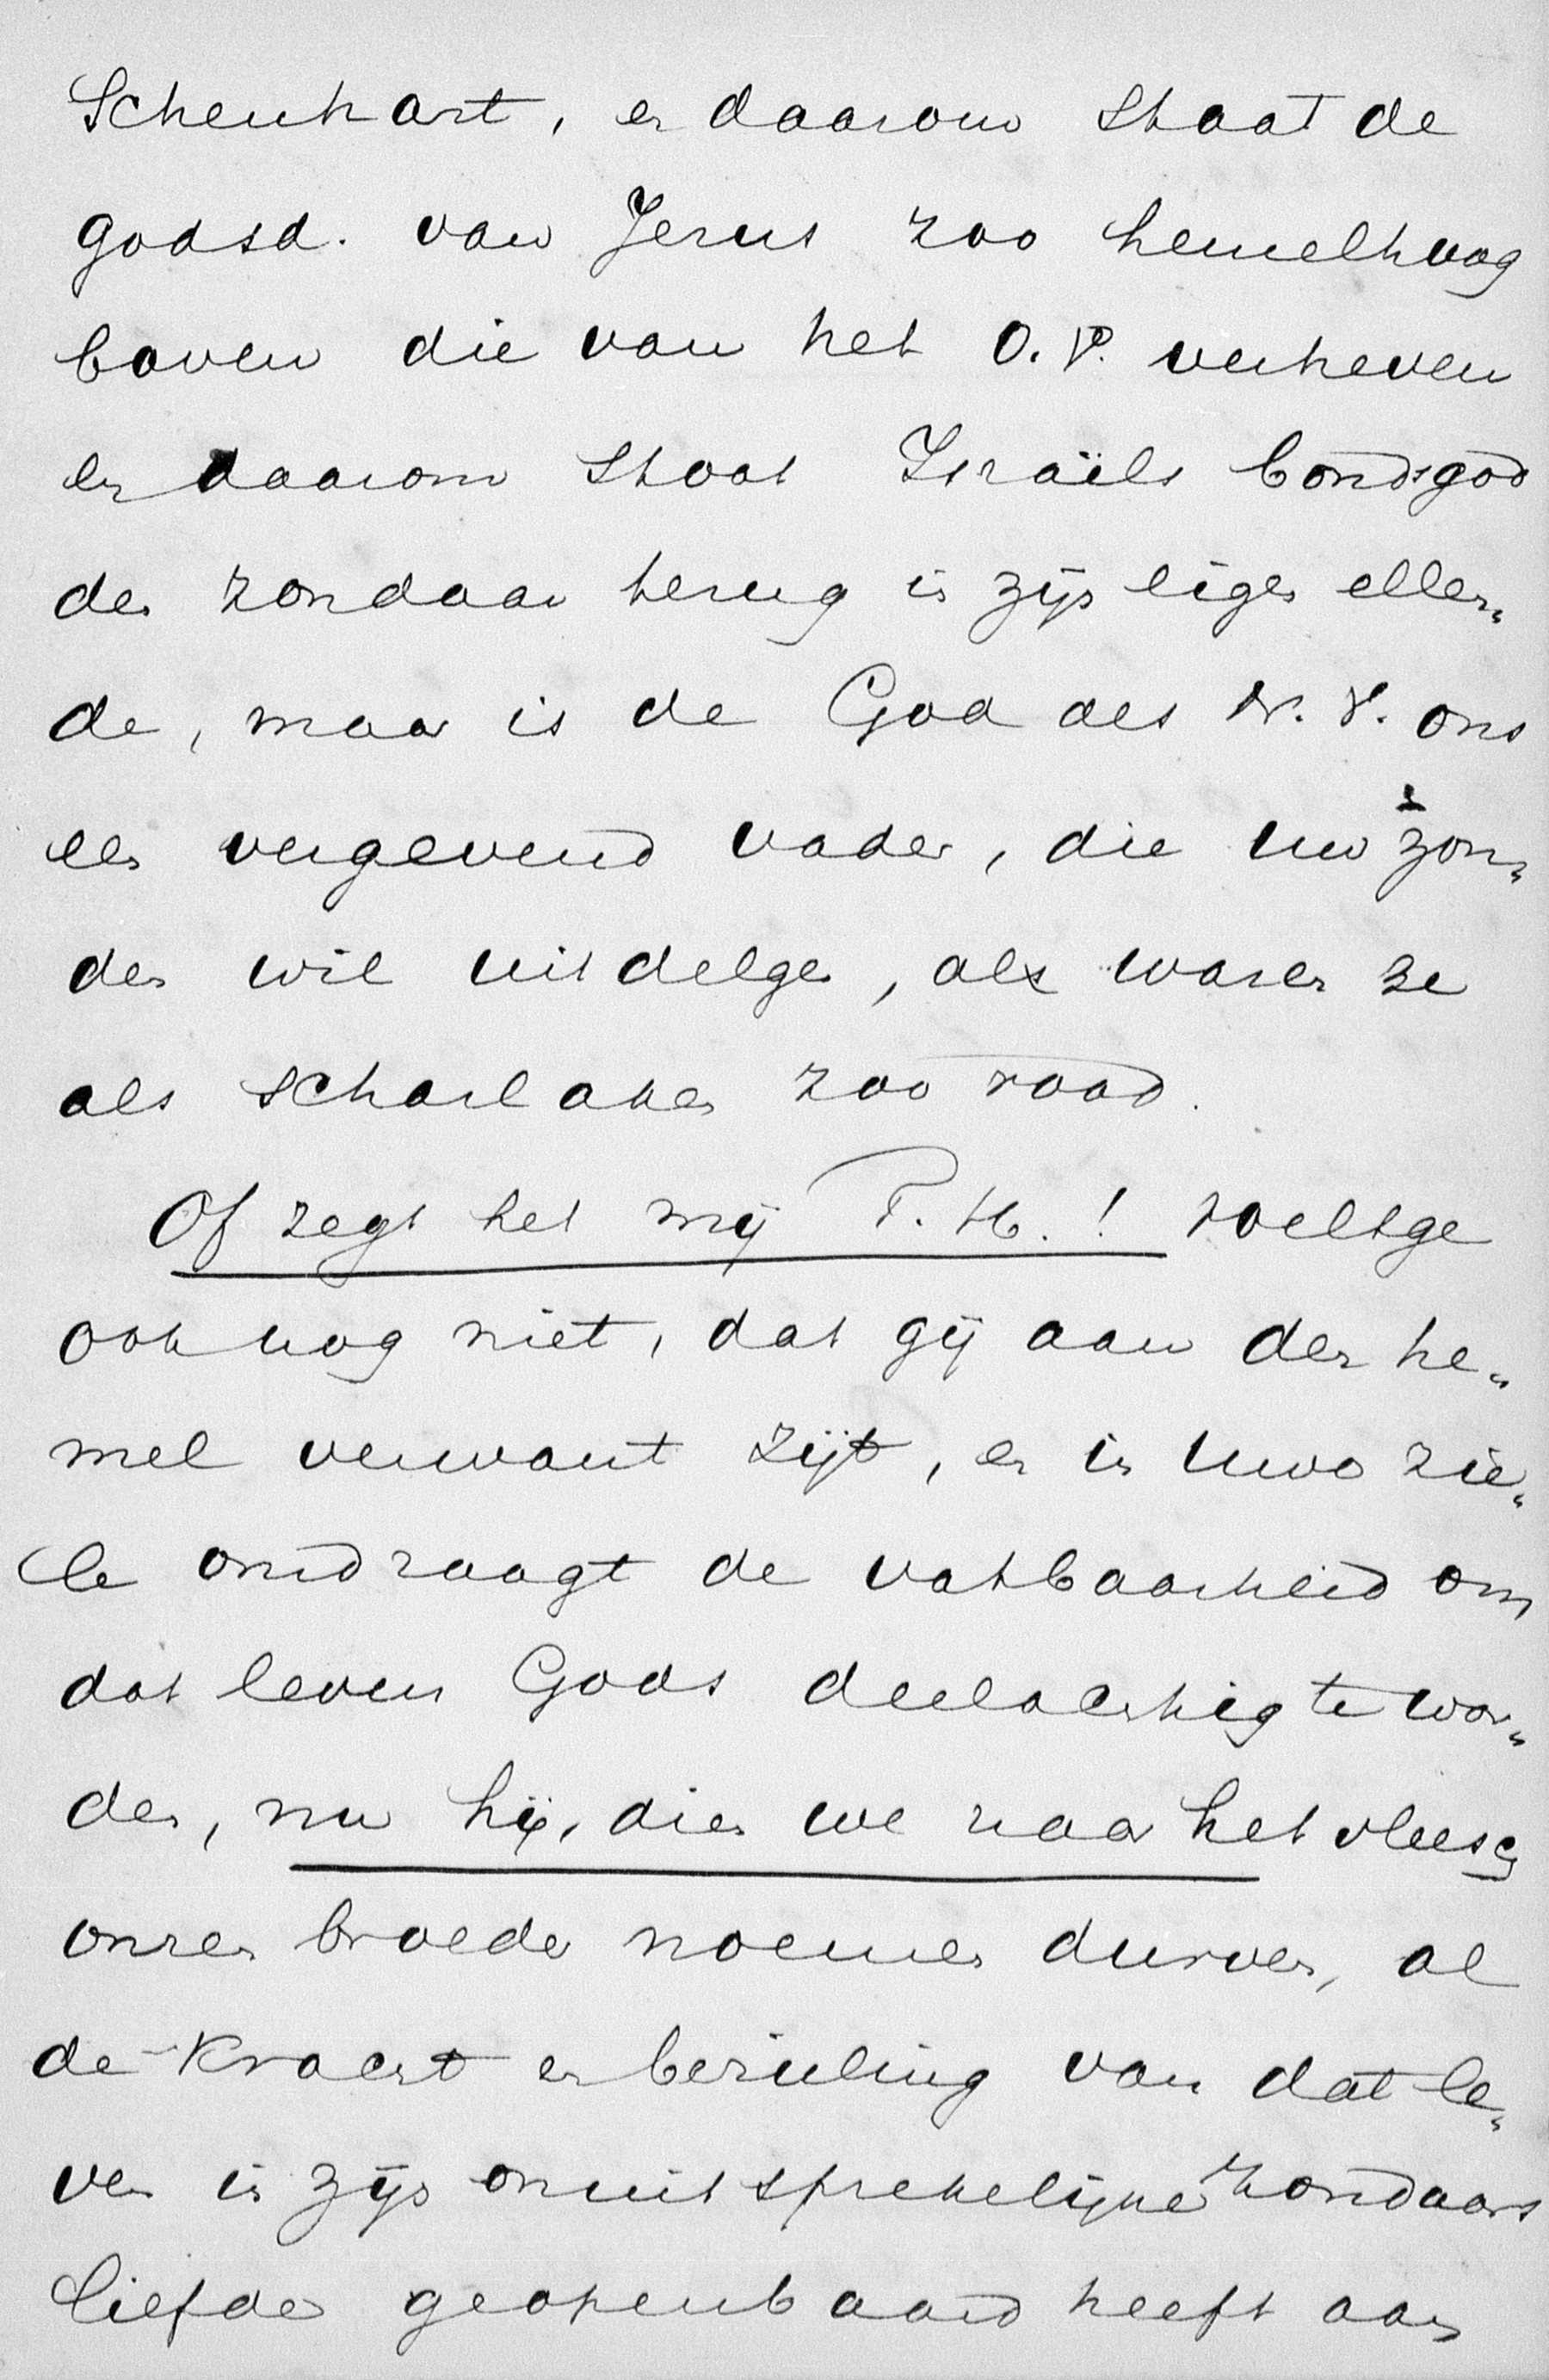 Schenkart, en daarom staat de
godsd. van Jezus zoo hemelhoog
boven die van het O.V. verheven
en daarom stoot Israëls bondsgod
den zondaar terug in zijn eigen ellen„
de, maar is de God des N.V. ons
een vergevend vader, die uw zon„
den wil uitdelgen, als waren ze
als scharlaken zoo rood.
Of zegt het mij T. H.! voelt ge
ook nog niet, dat gij aan den he„
mel verwant zijt, en in uwe zie„
le omdraagt de vatbaarheid om
dat leven Gods deelachtig te wor„
den, nu hij, dien we naar het vleesch
onzen broeder noemen durven, al
de kracht en bezieling van dat le„
ven in zijn onuitsprekelijke zondaars
liefde geopenbaard heeft aan